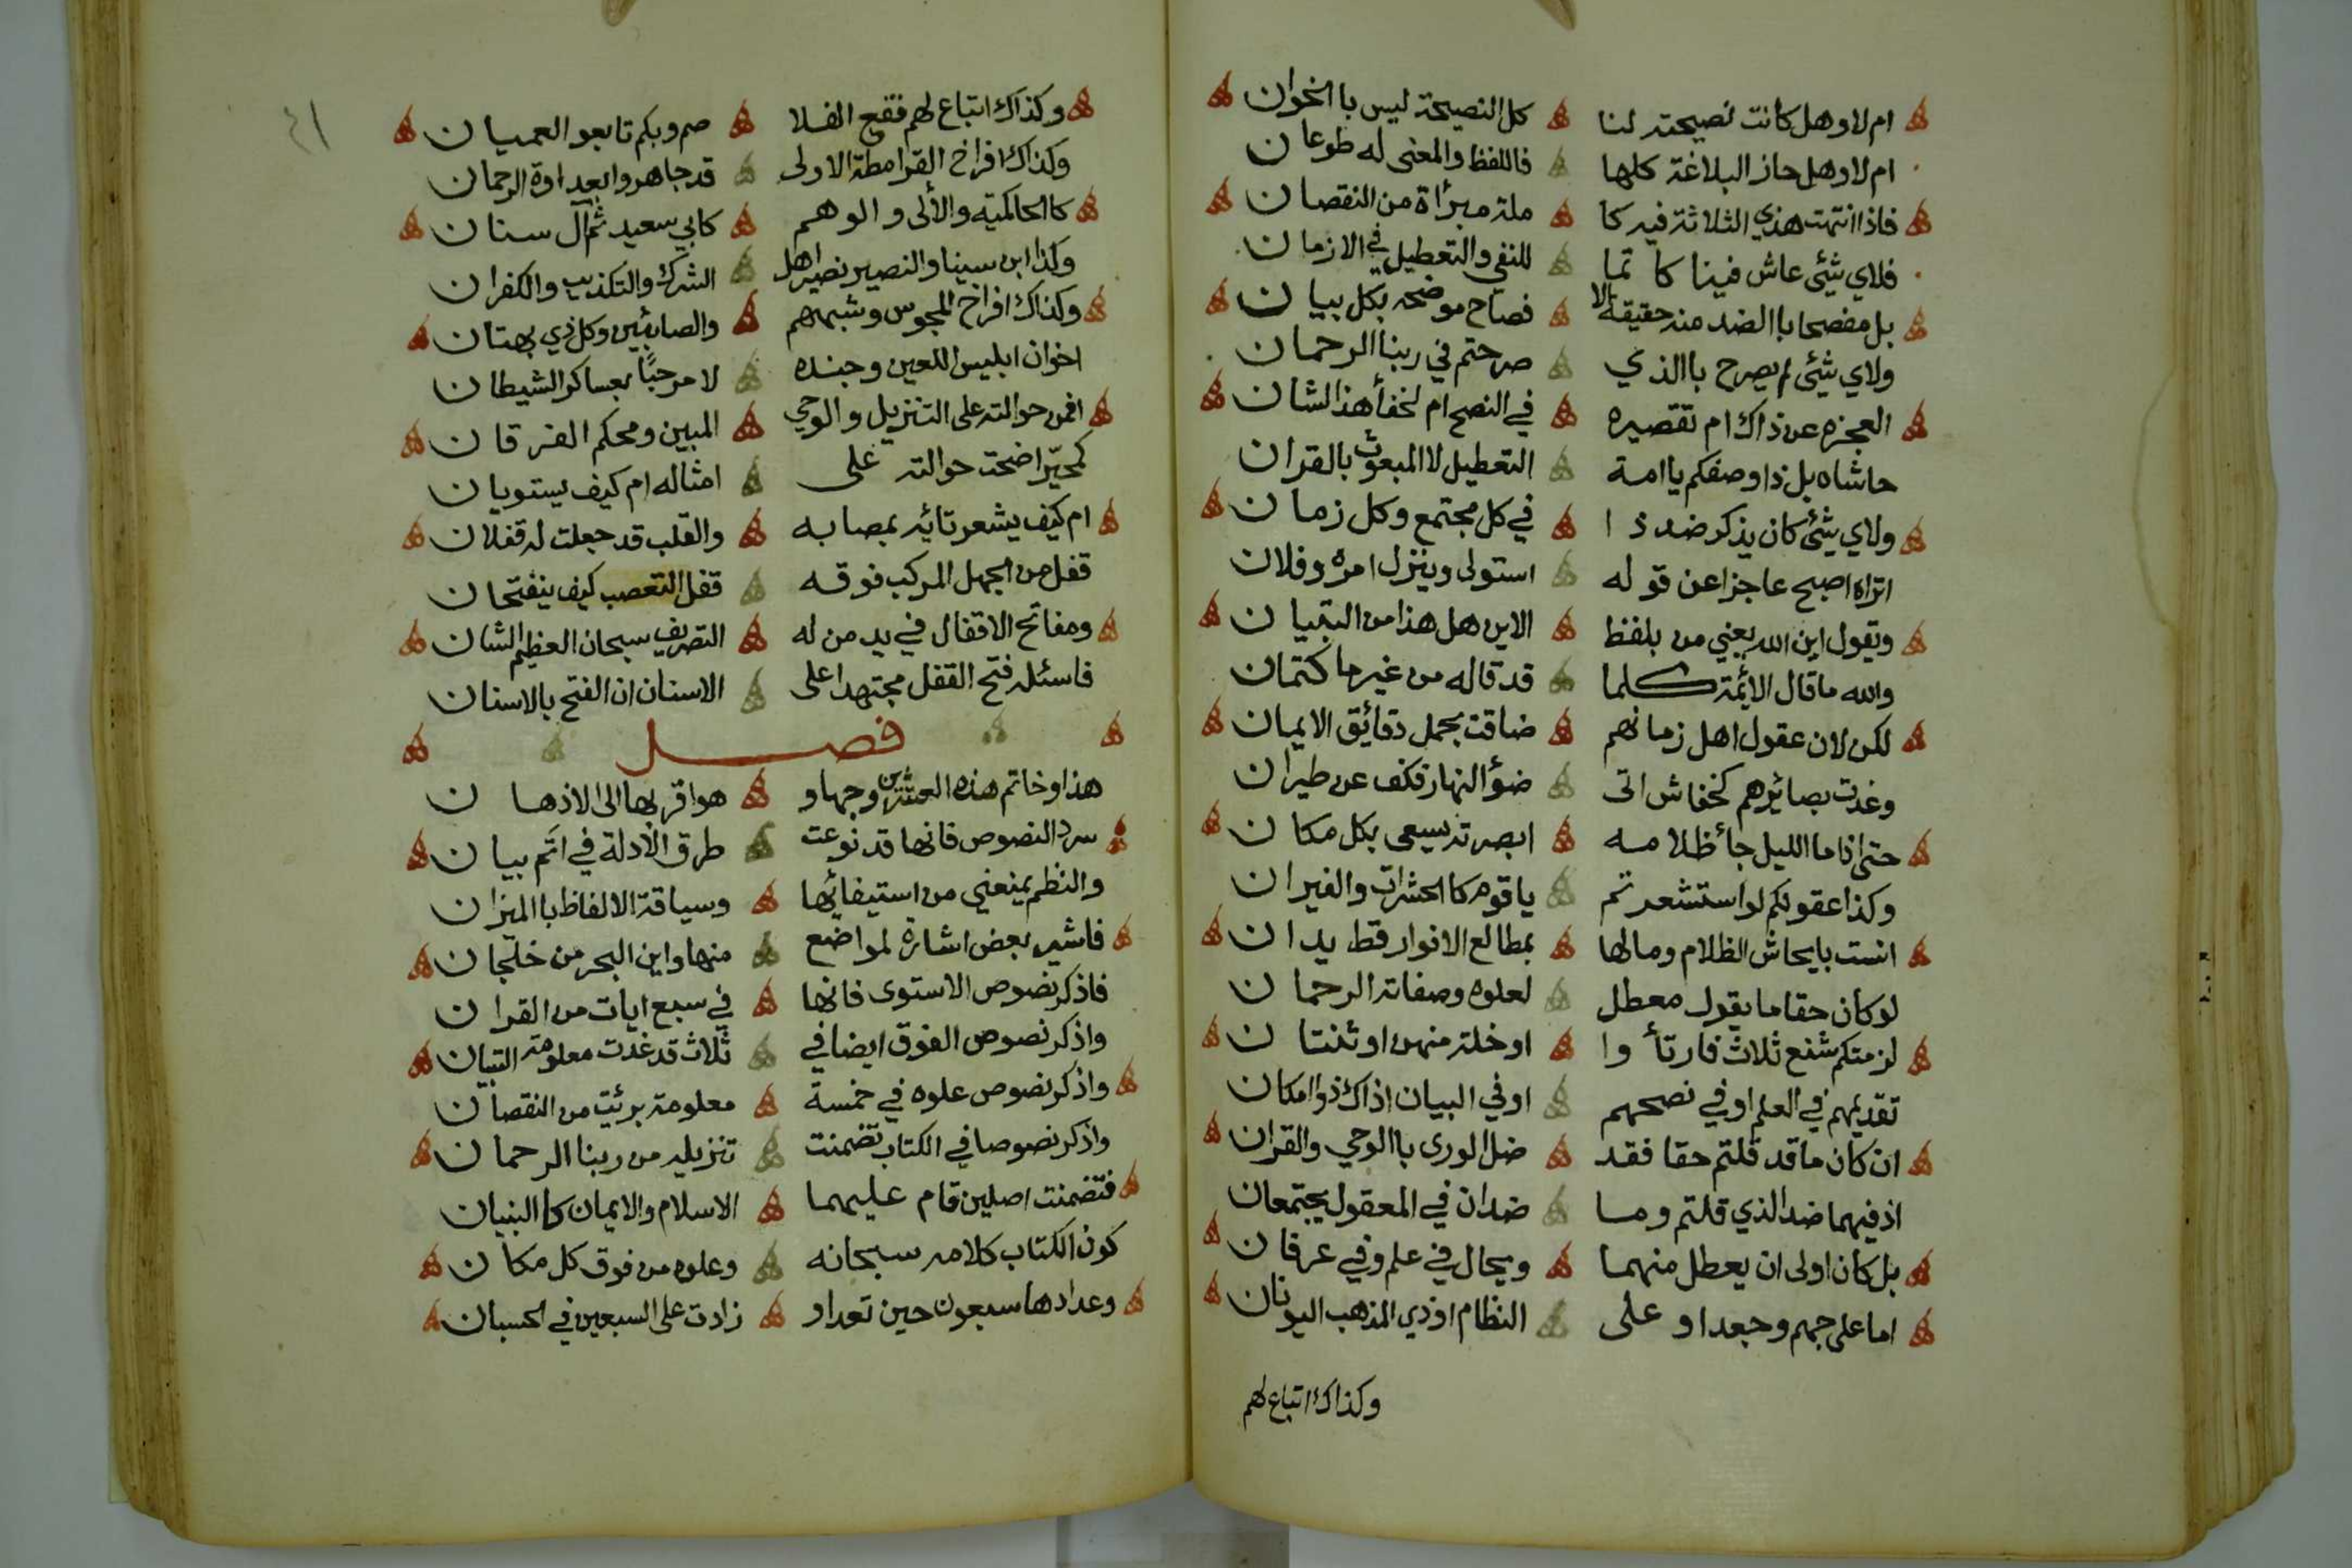 ام لا وهل كانت نصيحته لنا كل النصيحة ليس با الخوان
ام لا وهل حاز البلاغة كلها فاللفظ والمعنى له طوعان
فاذا انتهت هذي الثلاثة فيه كا ملة مبرأة من النقصان
فلاي شيئ عاش فينا كا تما للنفي والتعطيل في الازمان
بل مفصحا با الضد منه حقيقة الا فصاح موضحه بكل بيان
ولاي شيئ لم يصرح باالذي صرحتم في ربنا الرحمان
العجزه عن ذاك ام تقصيره في النصح ام لخفأ هذا الشان
حاشاه بل ذا وصفكم يا امة التعطيل لا المبعوث بالقران
ولاي شيئ كان يذكر ضد ذا في كل مجتمع وكل زمان
اتراه اصبح عاجزا عن قوله استولى وينزل امره وفلان
ويقول اين الله يعني من بلفظ الاين هل هذا من التبيان
والله ما قال الائمة كلما قد قاله من غير ما كتمان
لكن لان عقول اهل زمانهم ضاقت بحمل دقائق الايمان
وغدت بصائرهم كخفاش اتى ضؤ النهار فكف عن طيران
حتى اذا ما الليل جأ ظلامه ابصرته يسعى بكل مكان
وكذا عقولكم لو استشعرتم يا قوم كا الحشرات والفيران
انست بايحاش الظلام وما لها بمطالع الانوار قط يدان
لو كان حقا ما يقول معطل لعلوه وصفاته الرحمان
لزمتكم شنع ثلاث فارتأوا او خلة منهن او ثنتان
تقديمهم في العلم او في نصحهم او في البيان اذاك ذو امكان
ان كان ما قد قلتم حقا فقد ضل الورى باالوحي والقران
اذ فيهما ضد الذي قلتم وما ضدان في المعقول يجتمعان
بل كان اولى ان يعطل منهما ويحال في علم وفي عرفان
اما على جهم وجعد او على النظام او ذي المذهب اليونان
وكذاك اتباع لهم
٤١
وكذاك اتباع لهم فقع الفلا صم وبكم تابعو العميان
وكذاك افراخ القرامطة الاولى قد جاهروا بعداوة الرحمان
كا الحاكمية والألى والوهم كابي سعيد ثم آل سنان
وكذا ابن سينا والنصير نصير اهل الشرك والتكذيب والكفران
وكذاك افراخ المجوس وشبههم والصابئين وكل ذي بهتان
اخوان ابليس اللعين وجنده لا مرحبًا بعساكر الشيطان
افمن حوالته على التنزيل والوحي المبين ومحكم الفرقان
كمحيّر اضحت حوالته على امثاله ام كيف يستويان
ام كيف يشعر تائه بمصابه والقلب قد جعلت له قفلان
قفل من الجهل المركب فوقه قفل التعصب كيف ينفتحان
ومفاتح الاقفال في يد من له التصريف سبحان العظيم الشان
فاسئله فتح القفل مجتهدا على الاسنان ان الفتح بالاسنان
فصل
هذا وخاتم هذه العشرين وجها و هو اقربها الى الاذهان
سرد النصوص فانها قد نوعت طرق الأدلة في اتم بيان
والنظم يمنعني من استيفائها وسياقة الالفاظ با الميزان
فاشير بعض اشارة لمواضع منها واين البحر من خلجان
فاذكر نصوص الاستوى فانها في سبع ايات من القران
واذكر نصوص الفوق ايضا في ثلاث قد غدت معلومة التبيان
واذكر نصوص علوه في خمسة معلومة برئت من النقصان
واذكر نصوصا في الكتاب تضمنت تنزيله من ربنا الرحمان
فتضمنت اصلين قام عليهما الاسلام والايمان كا البنيان
كون الكتاب كلامه سبحانه وعلوه من فوق كل مكان
وعدادها سبعون حين تعد او زادت على السبعين في الحسبان